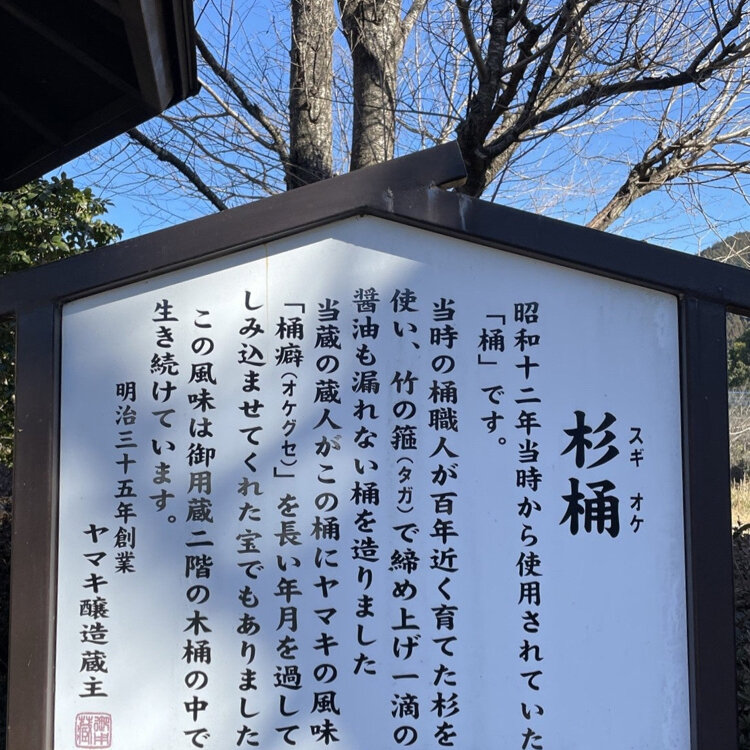 杉桶
スギ オケ
昭和十二年当時から使用されていた
「桶」です。
当時の桶職人が百年近く育てた杉を
使い、竹の箍(タガ)で締め上げ一滴の
醤油も漏れない桶を造りました
当蔵の蔵人がこの桶にヤマキの風味
「桶癖(オケグセ)」を長い年月を過して
しみ込ませてくれた宝でもありました
この風味は御用蔵二階の木桶の中で
生き続けています。
明治三十五年創業
ヤマキ醸造蔵主